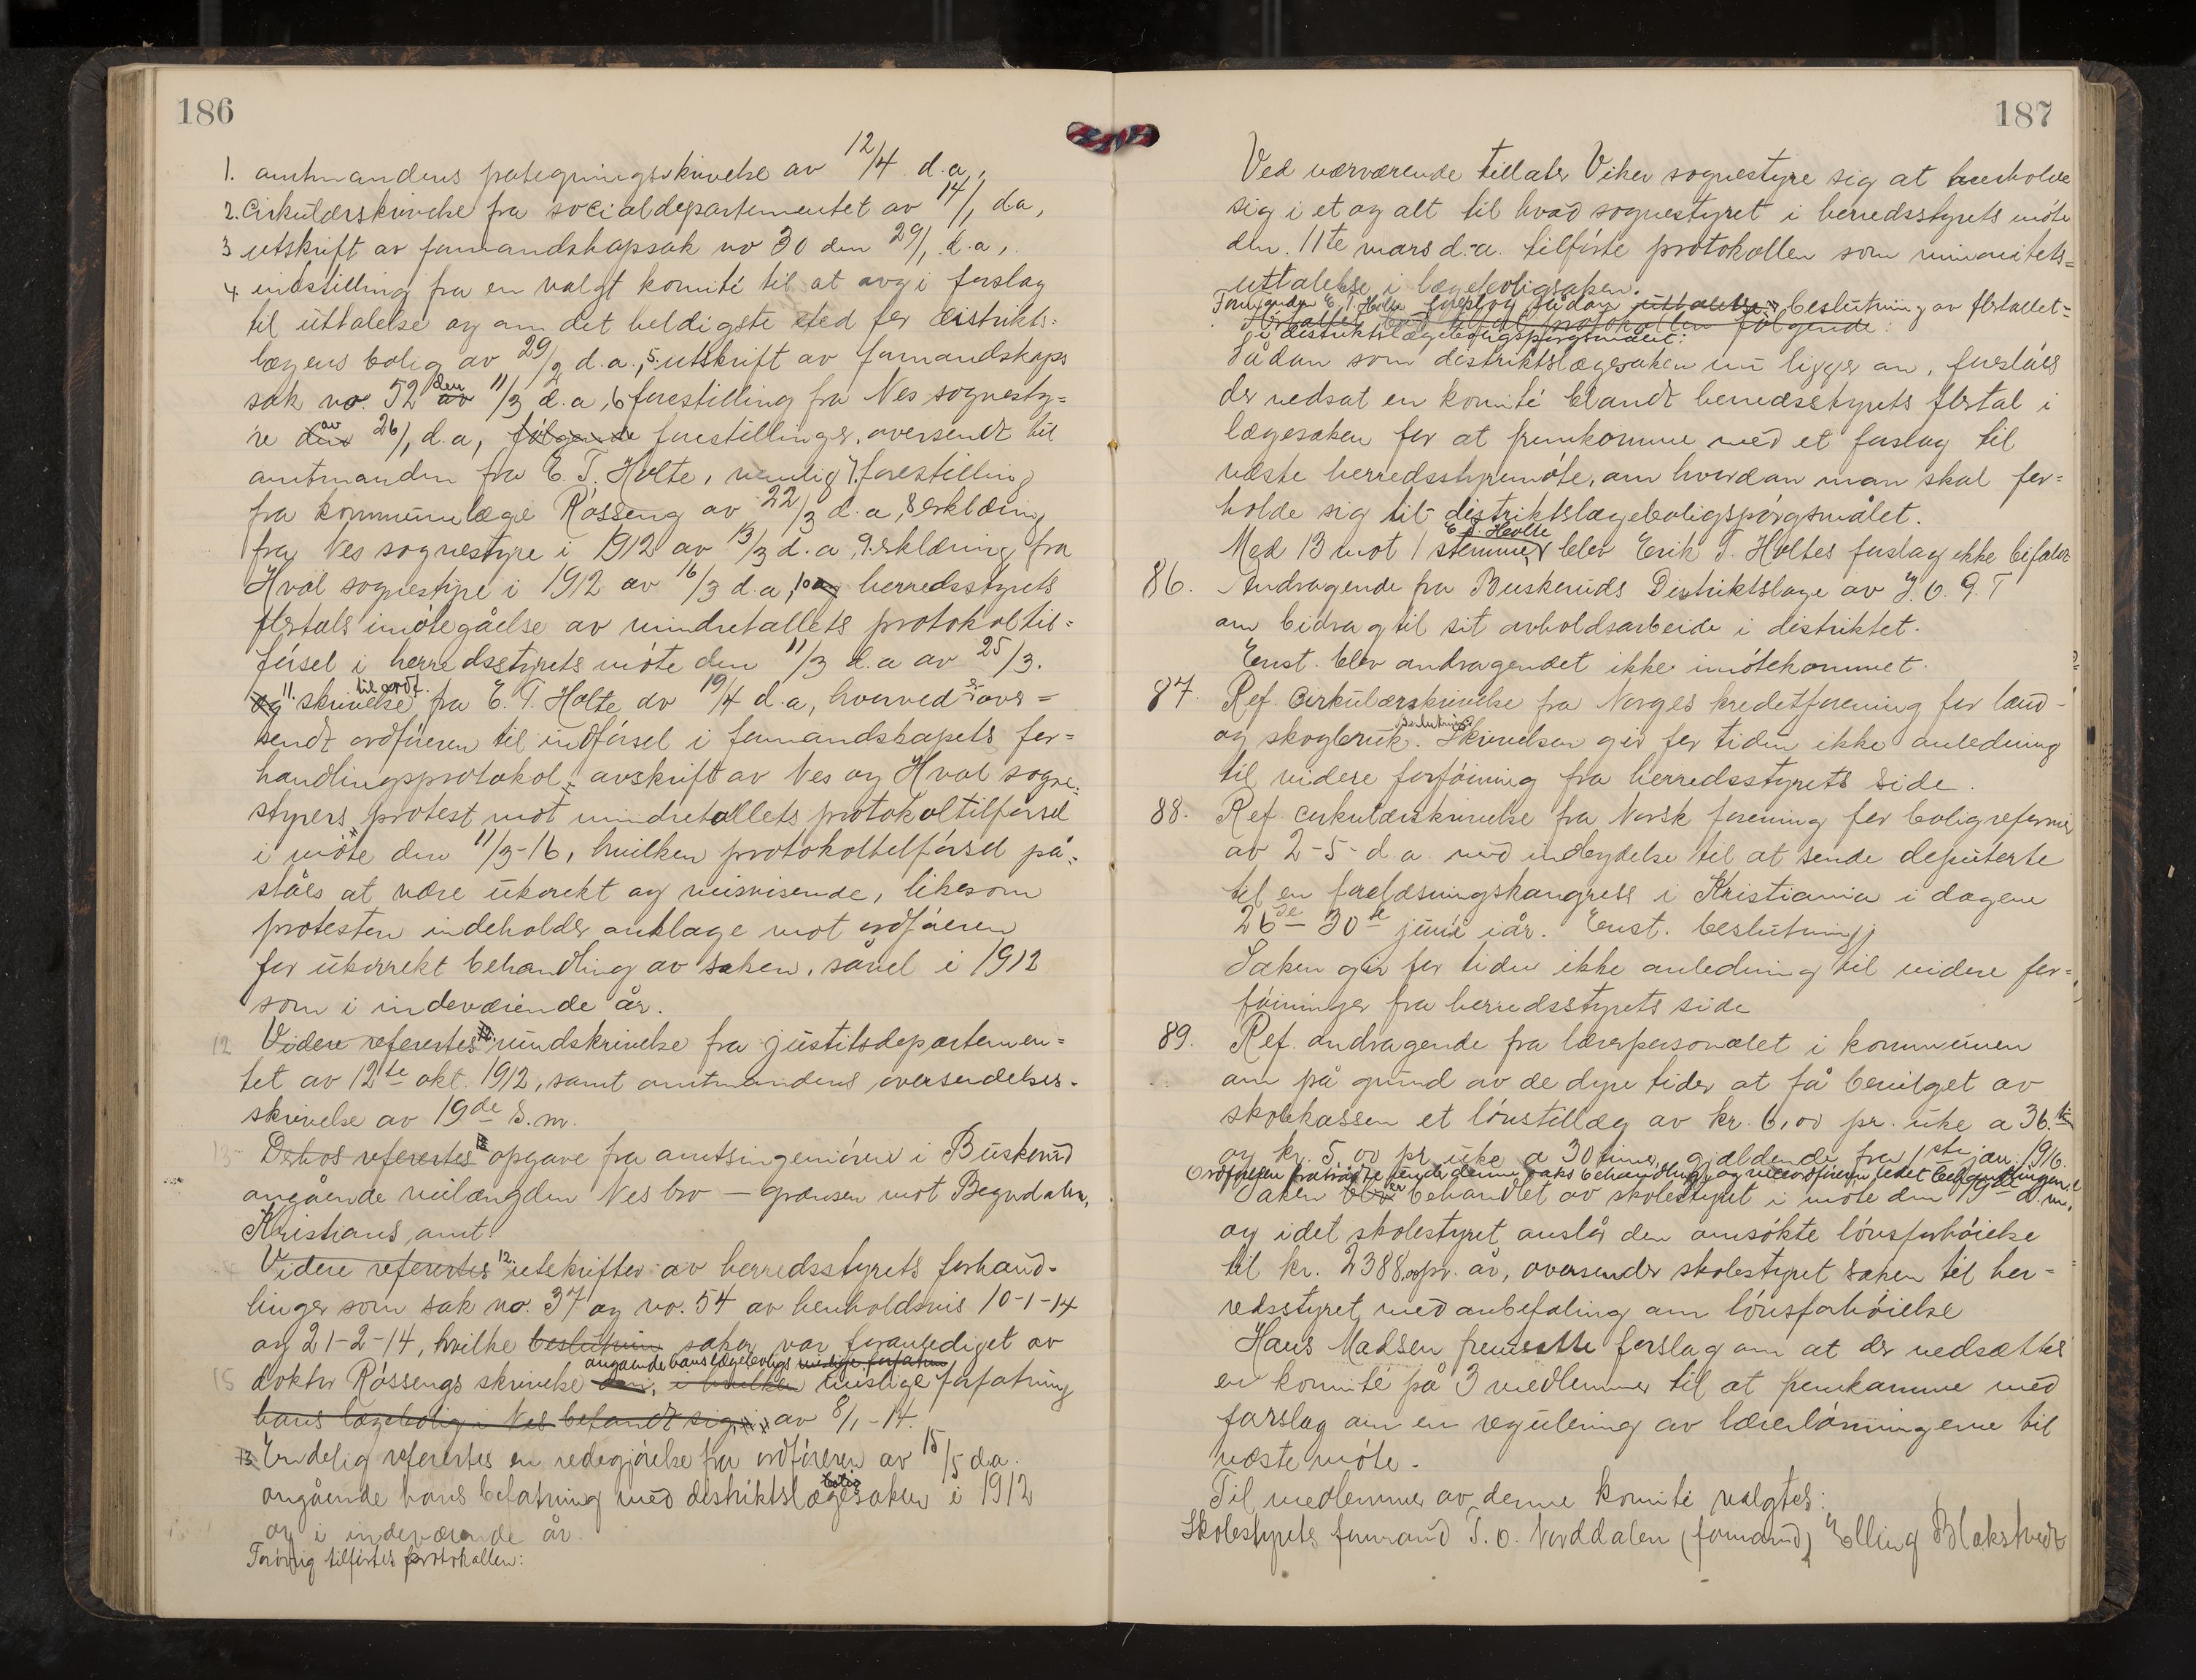 186
1. amtmandens pategningsskrivelse av 12/4 d.a.,
2. Cirkulærskrivelse fra socialdepartementet av 14/1 da,
3 utskrift av formandskapsak no 30 den 29/1 d.a,
4 indstilling fra en valgt komité til at avgi forslag
til uttalelse og om det heldigste sted for distrikts=
lægens bolig av 29/2 d.a., 5. utskrift av formandskaps
sak no. 52 den av 11/3 d.a, 6 forestilling fra Nes sognesty=
re den av 26/1 d.a, følgende forestillinger, oversendt til
amtmanden fra E. T. Holte, nemlig 7. forestilling
fra kommunelæge Røsseng av 22/3 d.a, 8 erklæring
fra Nes sognestyre i 1912 av 13/3 d.a, 9. erklæring fra
Hval sognestyre i 1912 av 16/3 d.a, 10 og herredsstyrets
flertals imøtegåelse av mindretallets protokoltil=
førsel i herredsstyrets møte den 11/3 d.a av 25/3.
og 11. skrivelse til ordf. fra E. T. Holte av 19/4 d.a, hvorved er over=
sendt ordføreren til indførsel i formandskapets for=
handlingsprotokol, avskrift av Nes og Hval sogne=
styrers protest mot mindretallets protokoltilførsel
i møte den 11/3-16, hvilken protokoltilførsel på=
ståes at være ukorekt og misvisende, likesom
protesten indeholder anklage mot ordføreren
for ukorrekt behandling av saken, såvel i 1912
som i indeværende år.
12 Videre refertes rundskrivelse fra justitsdepartemen=
tet av 12te okt. 1912, samt amtmandens oversendelses-
skrivelse av 19de s.m.
13 Derhos refertes opgave fra amtsingeniøren i Buskerud
angående veilængden Nes bro — grænsen mot Begndalen,
Kristians amt.
Videre refertes 12. utskrifter av herredsstyrets forhand-
linger som sak no. 37 og no. 54 av henholdsvis 10-1-14
og 21-2-14, hvilke beslutning saker var foranlediget av
angaende hans lægeboligs
15 doktor Røssengs skrivelse i hvilken uheldige forfatning
hans lægebolig i Nes befandt sig i, av 8/1-14.
13 Endelig refertes en redegjørelse fra ordføreren av 15/5 d.a.
angående hans befatning med distriktslægebolig saken i 1912
og i indeværende år.
Forøvrig tilførtes protokollen:
187
Ved nærværende tillater Viker sognestyre sig at henholde
sig i et og alt til hvad sognestyret i herredsstyrets møte
den 11te mars d.a. tilførte protokollen som minoritets=
uttalelse i lægeboligsaken.
Formanden E. T. Holte foreslog sådan uttalelse beslutning av flertallet=
flertallet protokollen følgende:
i distriktslægeboligspørgsmålet:
Sådan som distriktslægesaken nu ligger an, foreslåes
der nedsat en komité blandt herredsstyrets flertal i
lægesaken for at fremkomme med et forslag til
næste herredsstyremøte, om hvordan man skal for=
holde sig til distriktslægeboligspørgsmålet.
E. T. Holte
Med 13 mot 1 stemmer blev Erik T. Holtes forslag ikke bifaldt
86. Andragende fra Buskeruds Distriktslage av I. O. G. T
om bidrag til sit avholdsarbeide i distriktet.
Enst. blev andragendet ikke imøtekommet.
87. Ref. Cirkulærskrivelse fra Norges kreditforening for land-
og skogbruk. beslutning Skrivelsen gir for tiden ikke anledning
til videre forføining fra herredsstyrets side.
88. Ref. cirkulærskrivelse fra Norsk forening for boligreformer
av 2-5-d.a. med indbydelse til at sende deputerte
til en forelæsningskongress i Kristiania i dagene
26de — 30te juni iår. Enst. beslutning,
Saken gir for tiden ikke anledning til videre for=
føininger fra herredsstyrets side
89. Ref. andragende fra lærerpersonalet i kommunen
om på grund av de dyre tider at få bevilget av
skolekassen et lønstillæg av kr. 6,00 pr. uke a 36 ti
og kr. 5,00 pr uke a 30 timer, gjældende fra 1ste jan. 1916.
Ordføreren fratrådte under denne saks behandling og viceordføreren ledet behandlingen.
Saken blev er behandlet av skolestyret i møte den 19de d.m.
og idet skolestyret anslår den ansøkte lønsforhøielse
til kr. 2388,00 pr. år, oversender skolestyret saken til her=
redsstyret med anbefaling om lønsforhøielse
Hans Madsen fremsatte forslag om at der nedsættes
en komité på 3 medlemmer til at fremkomme med
forslag om en regulering av lærerlønningene til
næste møte.
Til medlemmer av denne komite valgtes:
Skolestyrets formand T. O. Norddalen (formand), Elling Blakstvedt